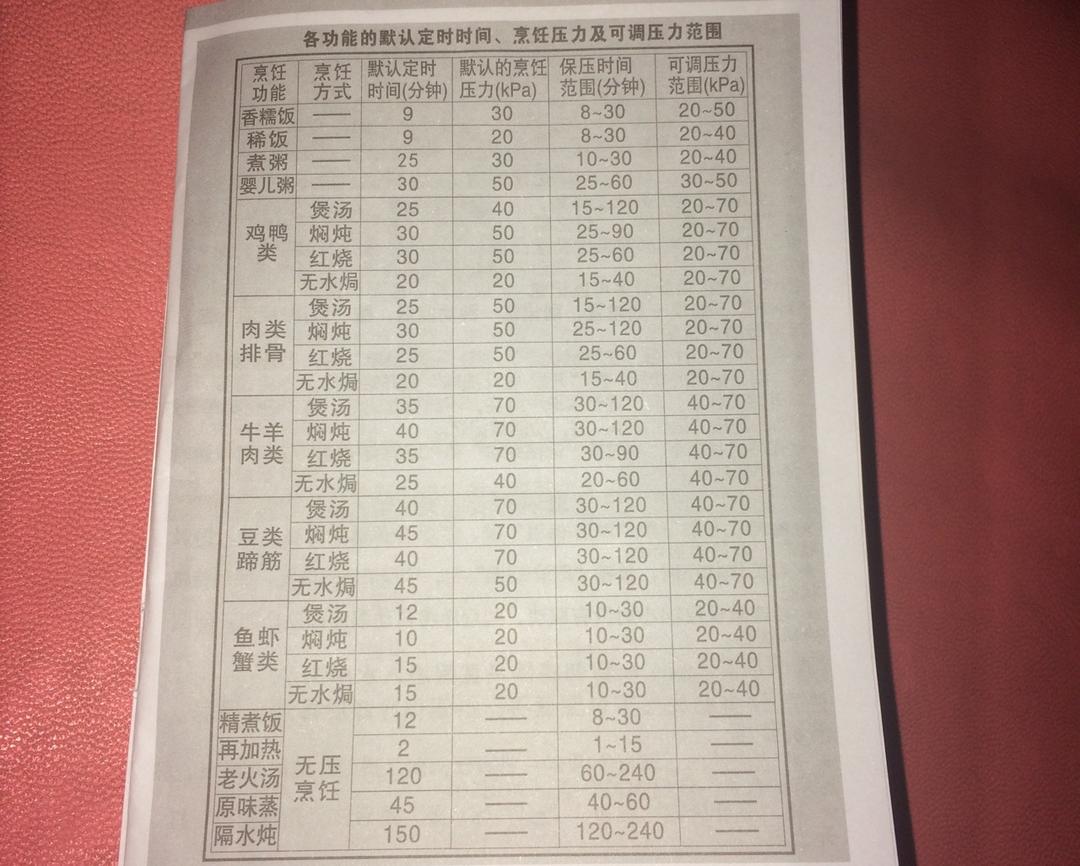 各功能的默认定时时间、烹饪压力及可调压力范围
烹饪功能 烹饪方式 默认定时时间(分钟) 默认的烹饪压力(kPa) 保压时间范围(分钟) 可调压力范围(kPa)
香糯饭 —— 9 30 8~30 20~50
稀饭 —— 9 20 8~30 20~40
煮粥 —— 25 30 10~30 20~40
婴儿粥 —— 30 50 25~60 30~50
鸡鸭类 煲汤 25 40 15~120 20~70
焖炖 30 50 25~90 20~70
红烧 30 50 25~60 20~70
无水焗 20 20 15~40 20~70
肉类排骨 煲汤 25 50 15~120 20~70
焖炖 30 50 25~120 20~70
红烧 25 50 25~60 20~70
无水焗 20 20 15~40 20~70
牛羊肉类 煲汤 35 70 30~120 40~70
焖炖 40 70 30~120 40~70
红烧 35 70 30~90 40~70
无水焗 25 40 20~60 40~70
豆类蹄筋 煲汤 40 70 30~120 40~70
焖炖 45 70 30~120 40~70
红烧 40 70 30~120 40~70
无水焗 45 50 30~120 40~70
鱼虾蟹类 煲汤 12 20 10~30 20~40
焖炖 10 20 10~30 20~40
红烧 15 20 10~30 20~40
无水焗 15 20 10~30 20~40
精煮饭 无压烹饪 12 —— 8~30 ——
再加热 2 —— 1~15 ——
老火汤 120 —— 60~240 ——
原味蒸 45 —— 40~60 ——
隔水炖 150 —— 120~240 ——